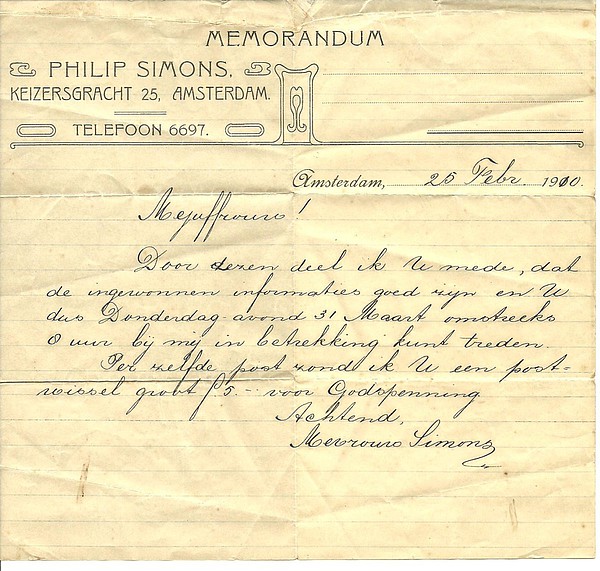 MEMORANDUM
PHILIP SIMONS,
KEIZERSGRACHT 25, AMSTERDAM.
TELEFOON 6697.
Amsterdam, 25 Febr. 1910.
Mejuffrouw!
Door dezen deel ik U mede, dat
de ingewonnen informaties goed zijn en U
dus Donderdag-avond 31 Maart omstreeks
8 uur bij mij in betrekking kunt treden.
Per zelfde post zond ik U een post=
wissel groot f. 5 - voor Godspenning
Achtend,
Mevrouw Simons